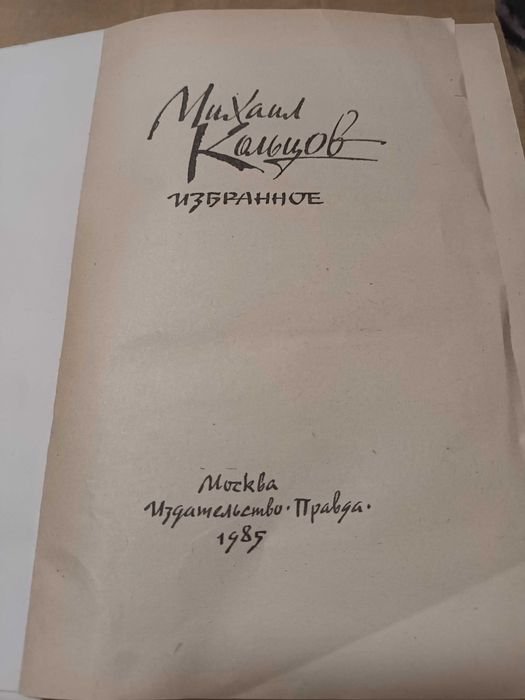 Михаил
Кольцов
ИЗБРАННОЕ
Москва
Издательство·Правда·
1985